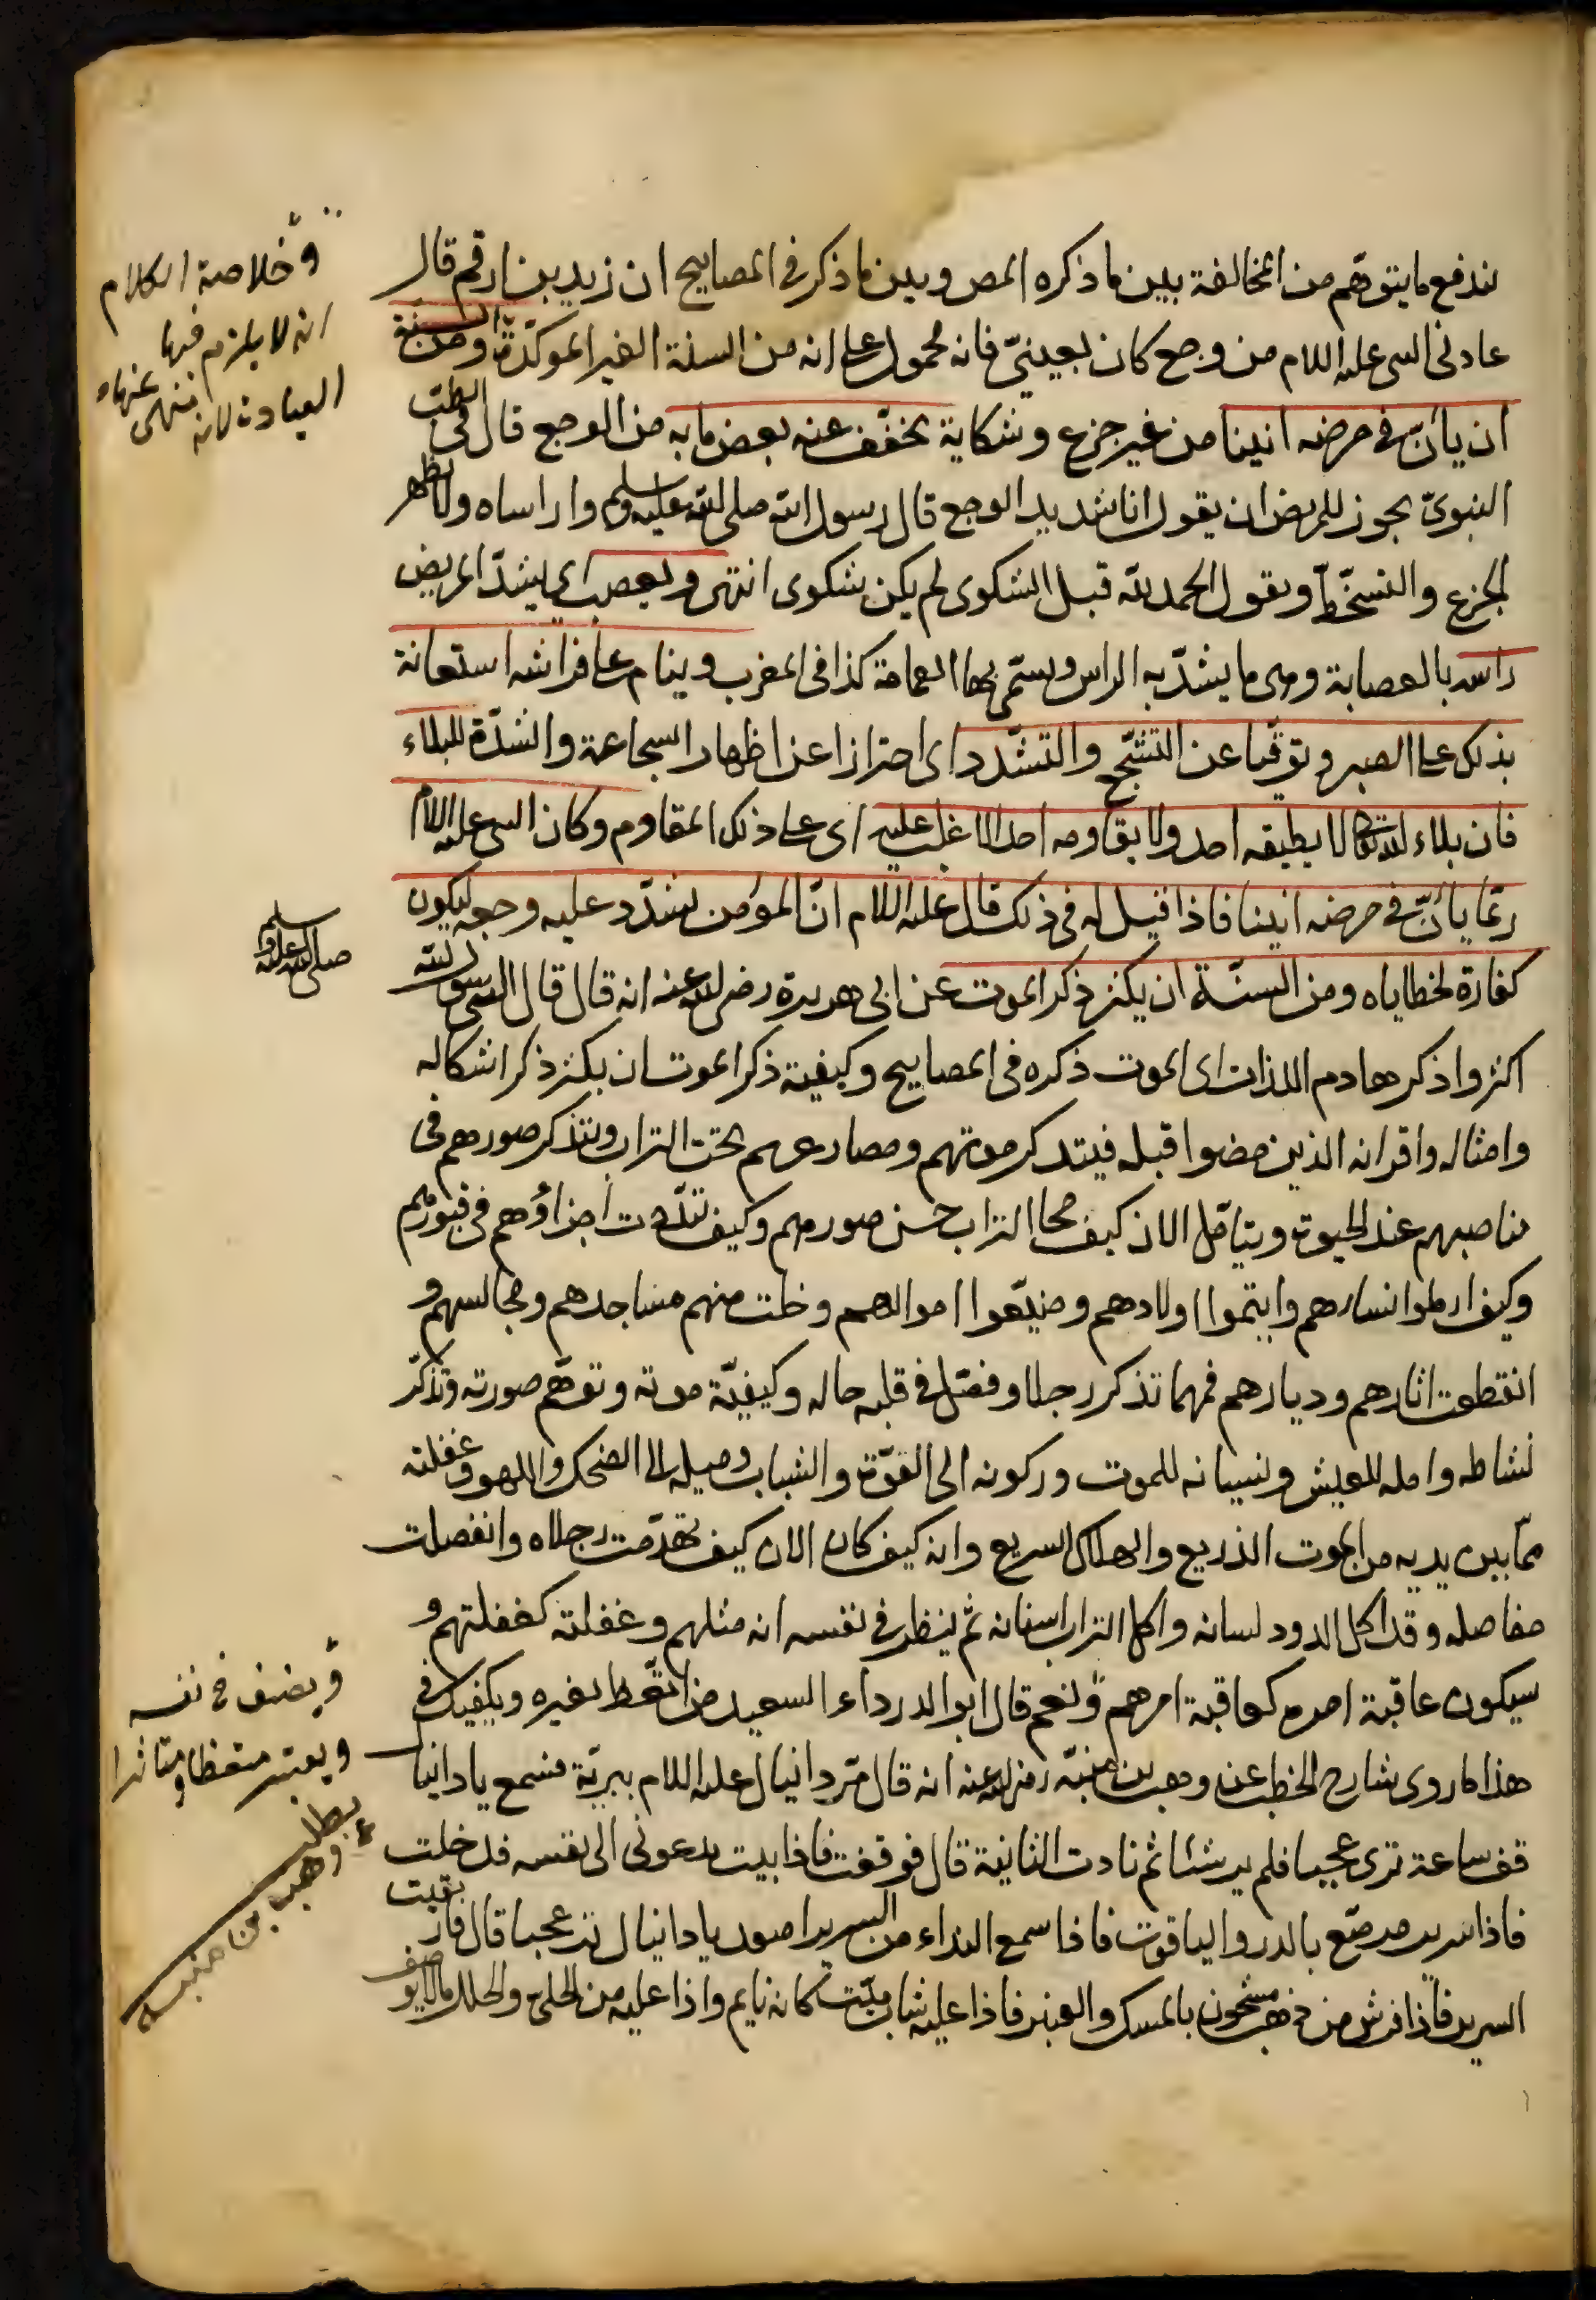 يندفع ما يتوهّم من المخالفة بين ما ذكره المص وبين ما ذكر في المصابيح ان زيد بن ارقم قال
عادني النبي عليه السلام من وجع كان بعينيّ فانه محمول على انه من السنة الغير الموكدّة ومن السنة
ان يأنّ في مرضه انينا من غير جزع وشكاية يخفّف عنه بعض ما به من الوجع قال في الطبّ
النبويّ يجوز للمريض ان يقول انا شديد الوجع قال رسول الله صلى الله عليه وسلم وا راساه ولا يظهر
الجزع والتسخّط ويقول الحمد لله قبل الشكوى لم يكن شكوى انتهى ويعصب اى يشدّ المريض
راسه بالعصابة وهى ما يشدّ به الراس ويسمّى بها العمامة كذا في المغرب وينام على فراشه استعانة
بذلك على الصبر وتوقّيا عن التشجّع والتشدّد اى احترازا عن اظهار الشجاعة والشدّة للبلاء
فان بلاء الله تعالى لا يطيقه احد ولا يقاومه احد الا غلب عليه اى على ذلك المقاوم وكان النبي عليه السلام
ربّما يأنّ في مرضه انينا فاذا قيل له في ذلك قال عليه السلام انّ المؤمن يشدّد عليه وجعه ليكون
كفارة لخطاياه ومن السنّة ان يكثر ذكر الموت عن ابى هريرة رضى الله عنه انه قال قال رسول الله
اكثروا ذكر هادم اللذات اى الموت ذكره في المصابيح وكيفية ذكر الموت ان يكثر ذكر اشكاله
وامثاله واقرانه الذين مضوا قبله فيتذكر موتهم ومصارعهم تحت التراب ويتذكر صورهم في
مناصبهم عند الحيوة ويتامّل الان كيف محا التراب حسن صورهم وكيف تبدّدت اجزاؤهم في قبورهم
وكيف ارملوا نساءهم وايتموا اولادهم وضيّعوا اموالهم وخلت منهم مساجدهم ومجالسهم و
انقطعت اثارهم وديارهم فمهما تذكر رجلا وفصّل في قلبه حاله وكيفيّة موته وتوهّم صورته وتذكّر
نشاطه وامله للعيش ونسيانه للموت وركونه الى القوّة والشباب وميله الى الضحك واللهو وغفلته
عمّا بين يديه من الموت الذريع والهلاك السريع وانه كيف كان الان كيف تهدّمت رجلاه وانفصلت
مفاصله وقد اكل الدود لسانه واكل التراب اسنانه ثم ينظر في نفسه انه مثلهم وغفلته كغفلتهم و
سيكون عاقبة امره كعاقبة امرهم ونعم قال ابو الدرداء السعيد من اتّعظ بغيره ويكفيك في
هذا ما روى شارح الخطب عن وهب بن منبّه رضى الله عنه انه قال مرّ دانيال عليه السلام ببريّة فسمع يا دانيال
قف ساعة ترى عجبا فلم ير شيئا ثم نادت الثانية قال فوقفت فاذا بيت يدعونى الى نفسه فدخلت
فاذا سرير مرصّع بالدر والياقوت فاذا سمع النداء من السرير اصعد يا دانيال تر عجبا قال فارتقيت
السرير فاذا فرش من ذهب مشحون بالمسك والعنبر فاذا عليه شاب ميّت كانه نايم واذا عليه من الحلى والحلل ما لا يوصف
وخلاصة الكلام
انه لا يلزم فيها
العيادة لانه
صلى الله عليه وسلم
ويعتبر متعظا ومتاثرا
وهب بن منبه